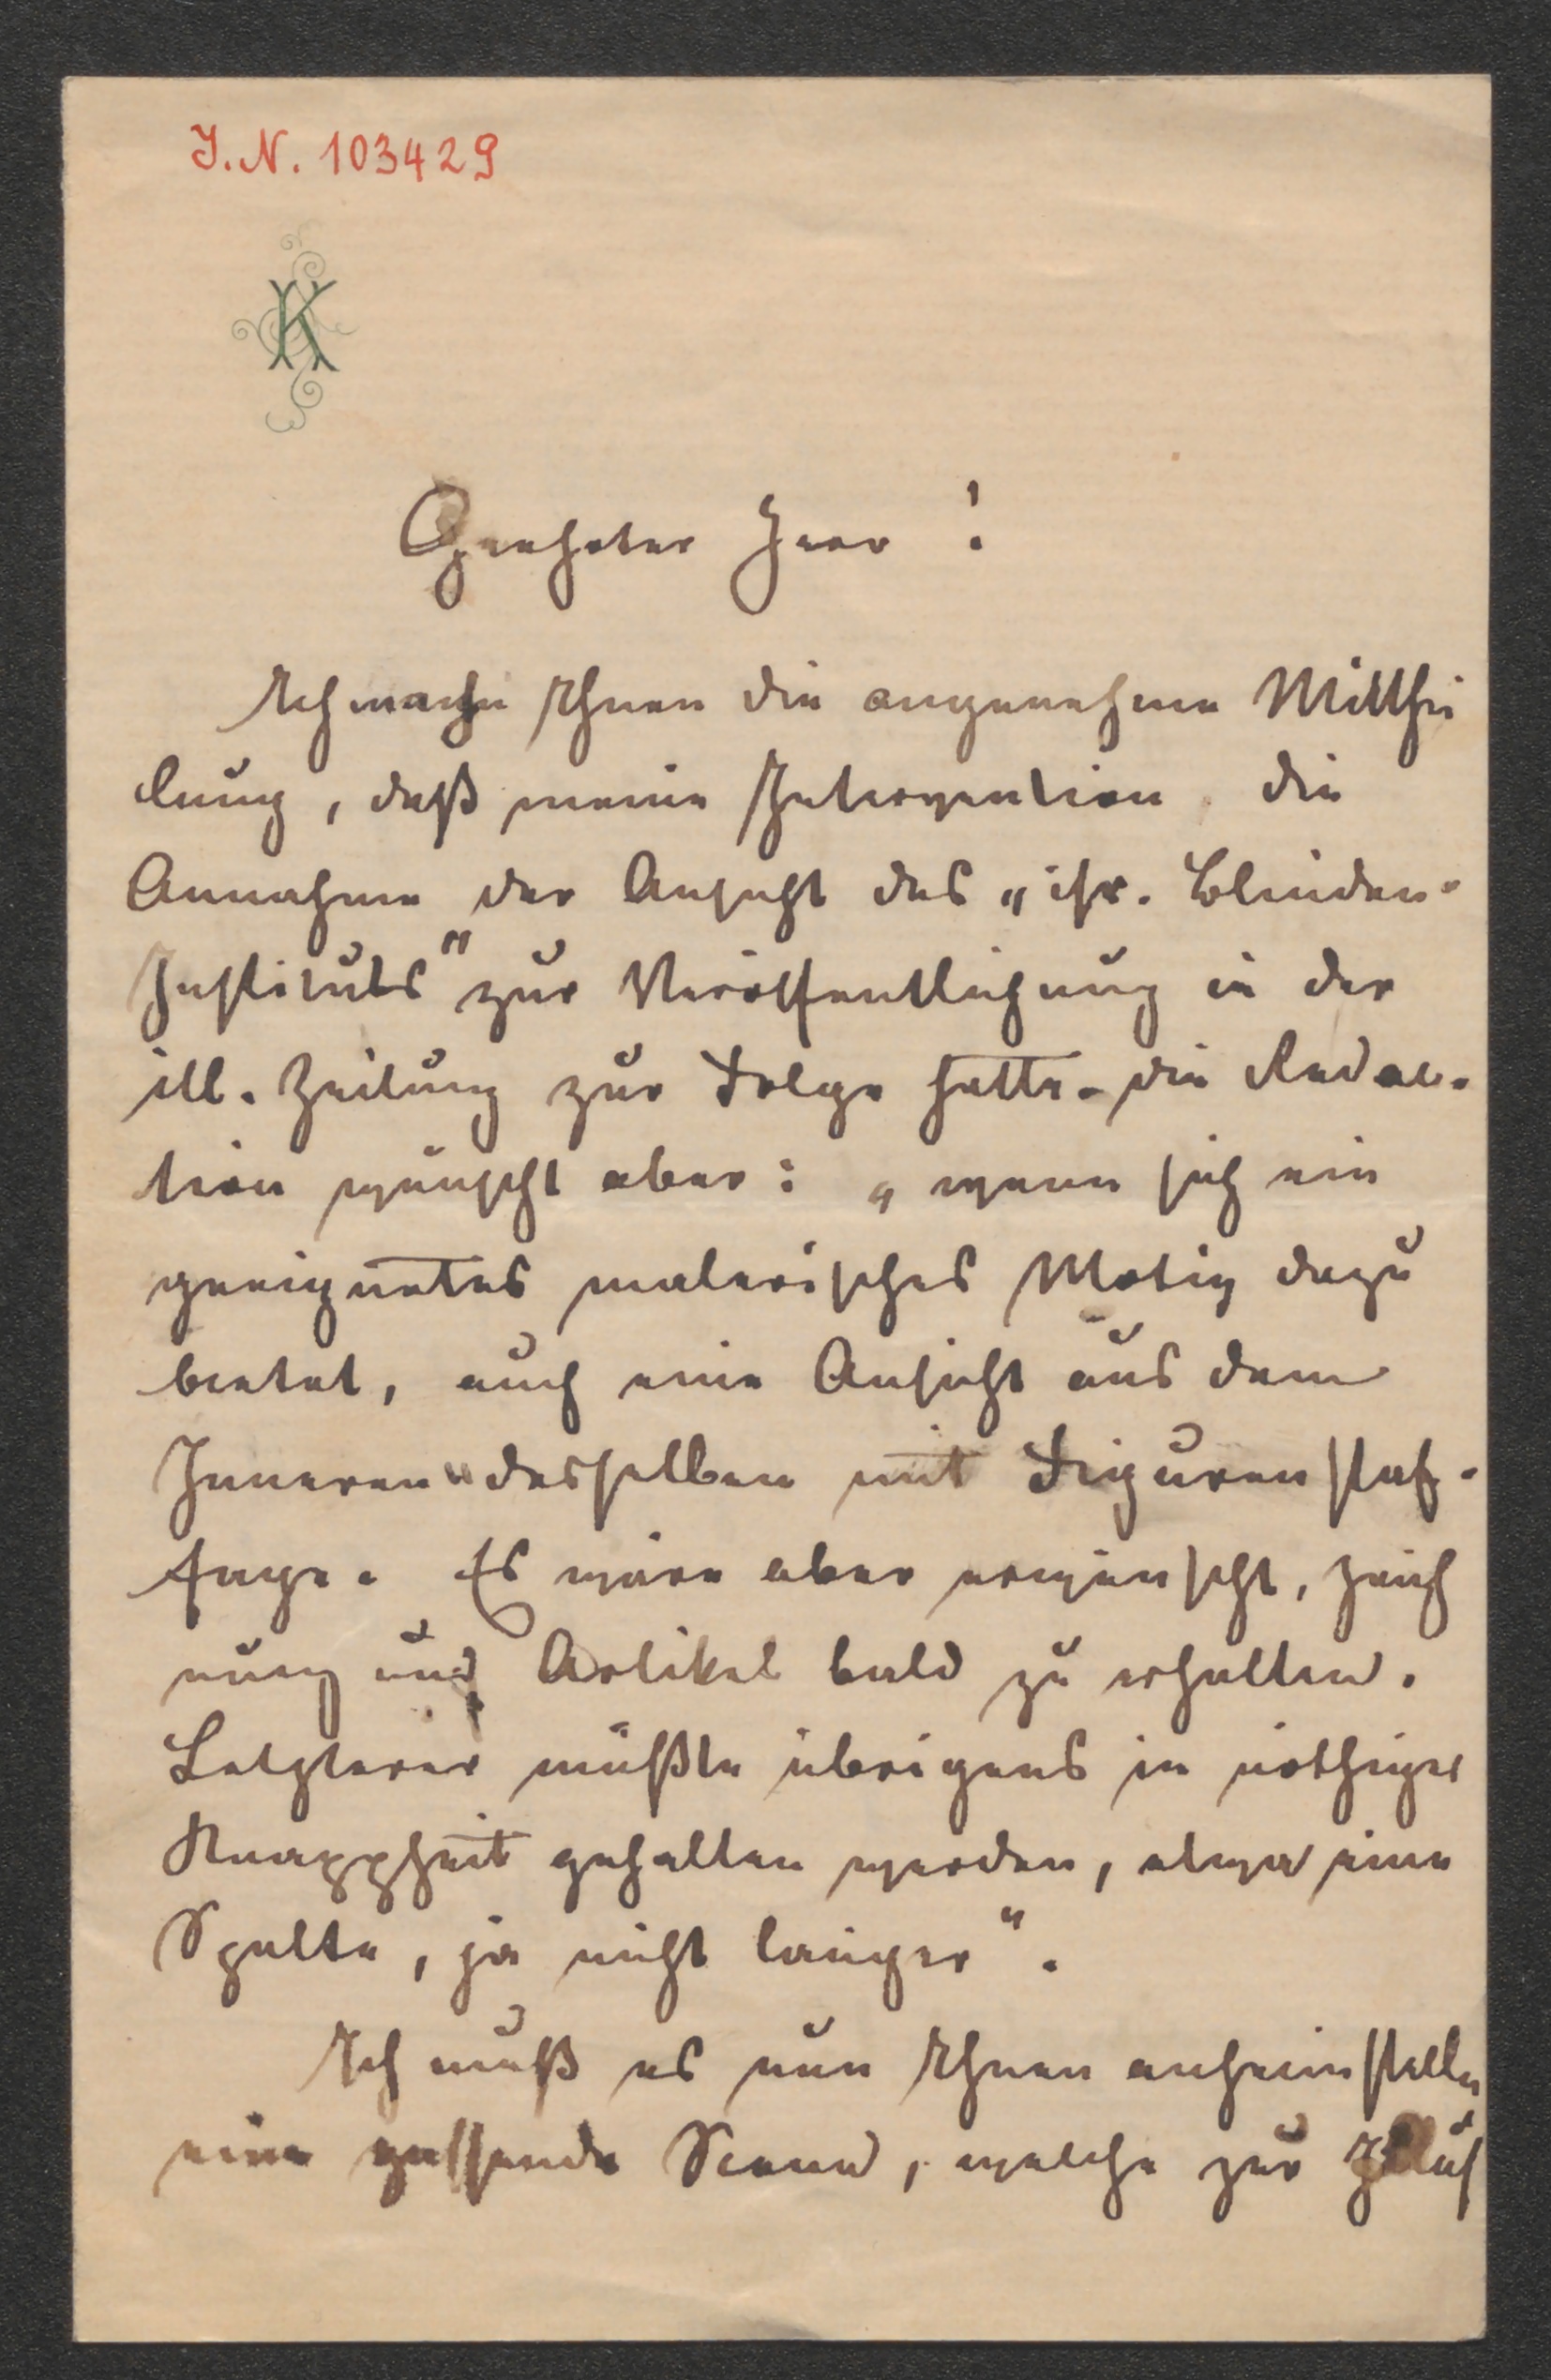 I.N. 103429
K
Geehrter Herr!
Ich mache Ihnen die angenehme Mitthei
lung, daß meine Intervention die
Annahme der Ansicht des „isr. Blinden-
Instituts" zur Veröffentlichung in der
ill. Zeitung zur Folge hatte - die Redac-
tion wünscht aber: „wenn sich ein
geeignetes malerisches Motiv dazu
bietet, auch eine Ansicht aus dem
Inneren" desselben mit Figurenstaf-
fage. Es wäre aber erwünscht, Zeich
nung und Artikel bald zu erhalten.
Letzterer müßte übrigens in nöthiger
Knappheit gehalten werden, etwa eine
Spalte, ja nicht länger".
Ich muß es nun Ihnen anheimstellen
eine passende Scene, welche zur Illus